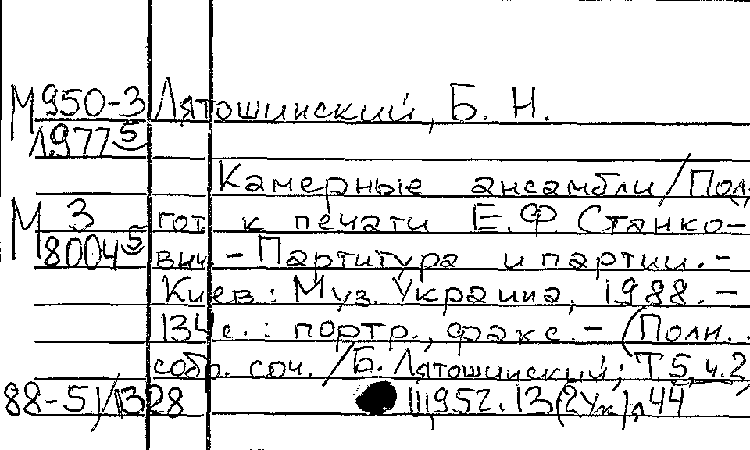 М950-3 Лятошинский, Б. Н.
Л977 5
Камерные ансамбли / Пол.
М 3 гот. к печати Е.Ф Станко-
18004 5 вич. - Партитура и партии. -
Киев: Муз. Украина, 1988. -
134 с.: портр., факс. - (Полн.
собр. соч. / Б. Лятошинский; Т 5, ч. 2
88-5)/1328 952.13(2Ук) 44